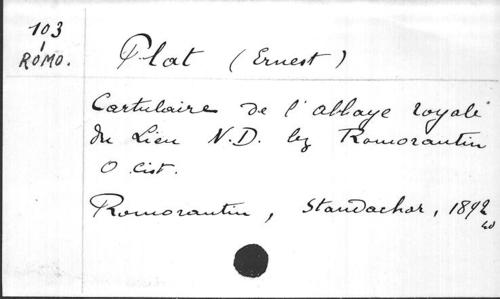 103
ROMO.
Plat (Ernest)
Cartulaire de l'abbaye royale
du Lieu N.D. lez Romorantin
O. Cist.
Romorantin, Standachar, 1892